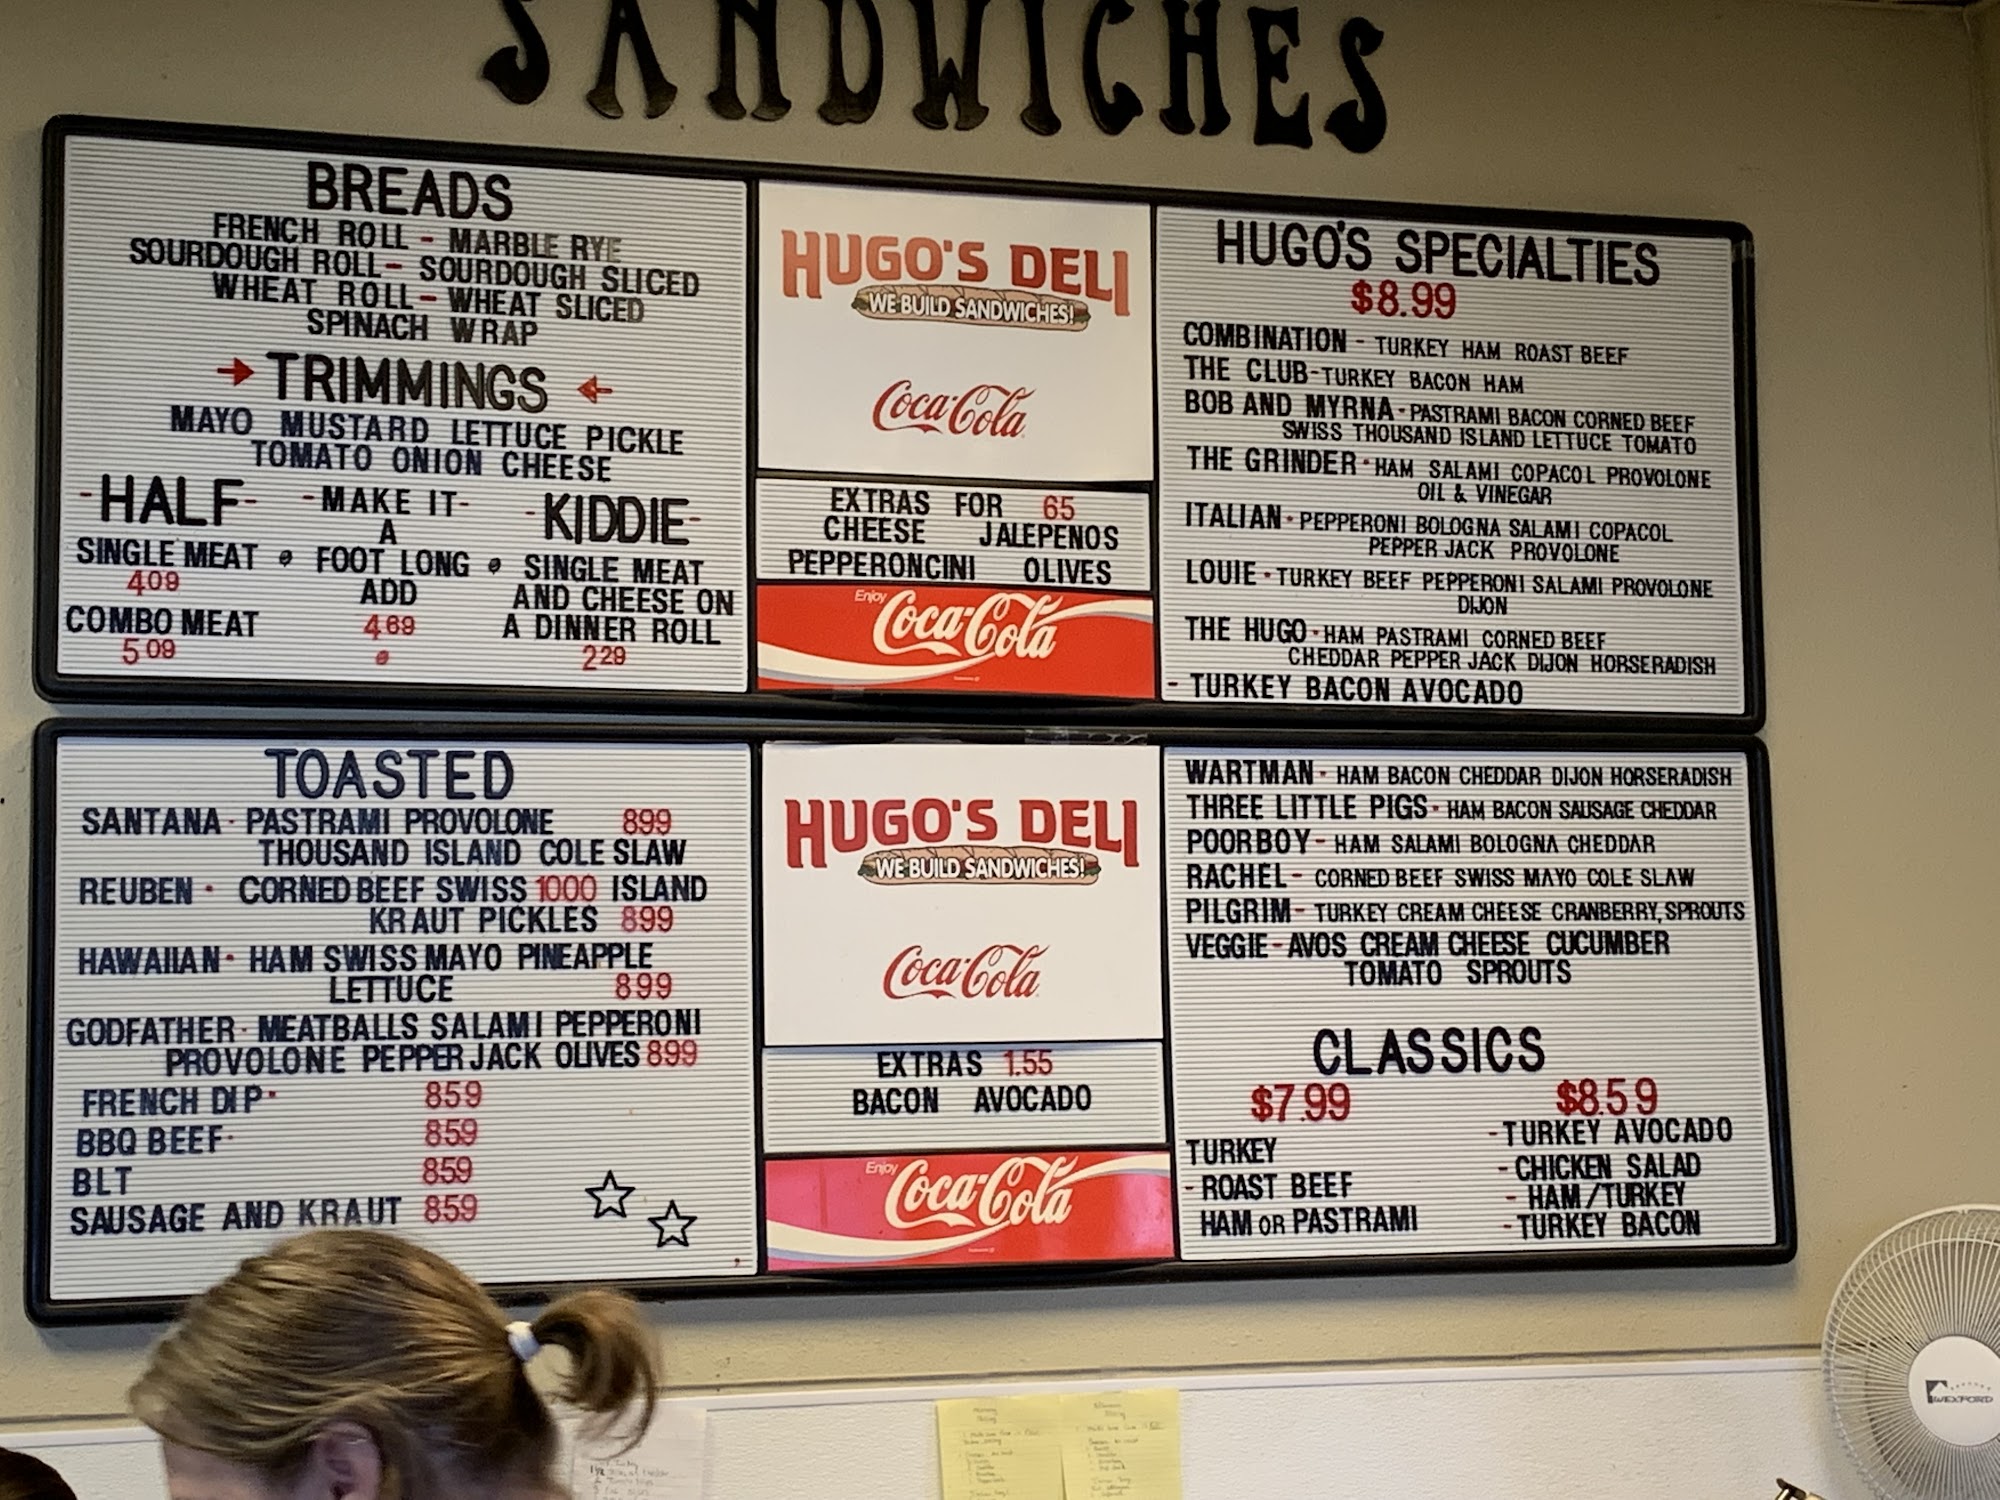 SANDWICHES
BREADS
FRENCH ROLL - MARBLE RYE
SOURDOUGH ROLL - SOURDOUGH SLICED
WHEAT ROLL - WHEAT SLICED
SPINACH WRAP
→ TRIMMINGS ←
MAYO MUSTARD LETTUCE PICKLE
TOMATO ONION CHEESE
-HALF-
SINGLE MEAT
409
COMBO MEAT
509
-MAKE IT-
A
FOOT LONG
ADD
469
-KIDDIE-
SINGLE MEAT
AND CHEESE ON
A DINNER ROLL
229
HUGO'S DELI
WE BUILD SANDWICHES!
Coca-Cola
EXTRAS FOR 65
CHEESE JALEPENOS
PEPPERONCINI OLIVES
Enjoy
Coca-Cola
HUGO'S SPECIALTIES
$8.99
COMBINATION - TURKEY HAM ROAST BEEF
THE CLUB - TURKEY BACON HAM
BOB AND MYRNA - PASTRAMI BACON CORNED BEEF
SWISS THOUSAND ISLAND LETTUCE TOMATO
THE GRINDER - HAM SALAMI COPACOL PROVOLONE
OIL & VINEGAR
ITALIAN - PEPPERONI BOLOGNA SALAMI COPACOL
PEPPER JACK PROVOLONE
LOUIE - TURKEY BEEF PEPPERONI SALAMI PROVOLONE
DIJON
THE HUGO - HAM PASTRAMI CORNED BEEF
CHEDDAR PEPPER JACK DIJON HORSERADISH
- TURKEY BACON AVOCADO
TOASTED
SANTANA - PASTRAMI PROVOLONE 899
THOUSAND ISLAND COLE SLAW
REUBEN - CORNED BEEF SWISS 1000 ISLAND
KRAUT PICKLES 899
HAWAIIAN - HAM SWISS MAYO PINEAPPLE
LETTUCE 899
GODFATHER - MEATBALLS SALAMI PEPPERONI
PROVOLONE PEPPER JACK OLIVES 899
FRENCH DIP - 859
BBQ BEEF - 859
BLT 859
SAUSAGE AND KRAUT 859
HUGO'S DELI
WE BUILD SANDWICHES!
Coca-Cola
EXTRAS 1.55
BACON AVOCADO
Enjoy
Coca-Cola
WARTMAN - HAM BACON CHEDDAR DIJON HORSERADISH
THREE LITTLE PIGS - HAM BACON SAUSAGE CHEDDAR
POORBOY - HAM SALAMI BOLOGNA CHEDDAR
RACHEL - CORNED BEEF SWISS MAYO COLE SLAW
PILGRIM - TURKEY CREAM CHEESE CRANBERRY, SPROUTS
VEGGIE - AVOS CREAM CHEESE CUCUMBER
TOMATO SPROUTS
CLASSICS
$7.99
TURKEY
- ROAST BEEF
HAM OR PASTRAMI
$8.59
- TURKEY AVOCADO
- CHICKEN SALAD
- HAM/TURKEY
- TURKEY BACON
WEXFORD